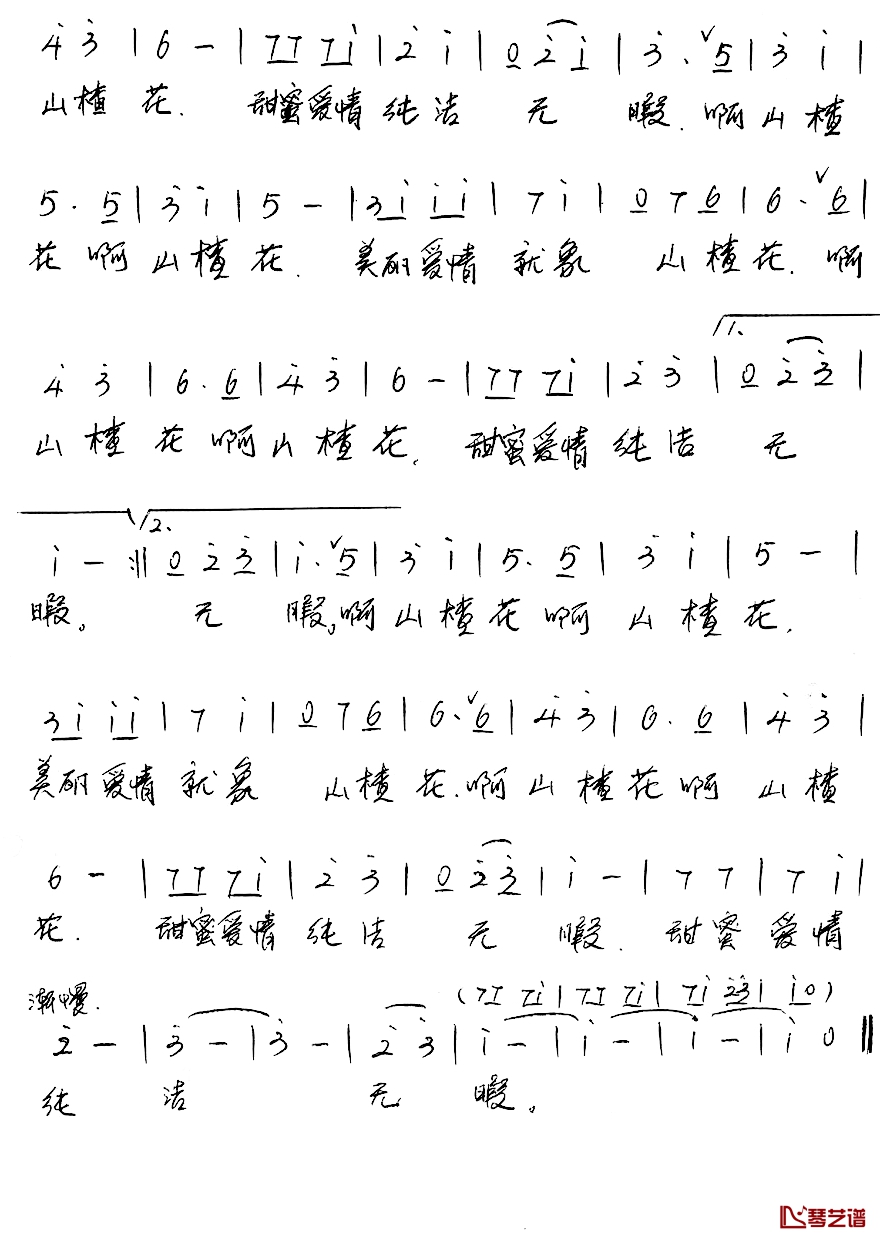 4̇ 3̇ | 6 — | 7 7 7 i | 2̇ i | 0 2̇ i | 3̇. ∨5 | 3̇ i |
山楂 花. 甜蜜爱情 纯洁 无 暇. 啊 山 楂
5 . 5 | 3̇ i | 5 — | 3 i i i | 7 i | 0 7 6 | 6. ∨6 |
花 啊 山 楂 花. 美丽爱情 就象 山 楂 花. 啊
1.
4̇ 3̇ | 6. 6 | 4̇ 3̇ | 6 — | 7 7 7 i | 2̇ 3̇ | 0 2̇ 3̇ |
山 楂 花 啊 山 楂 花. 甜蜜爱情 纯洁 无
2.
i — :‖ 0 2̇ 3̇ | i. ∨5 | 3̇ i | 5. 5 | 3̇ i | 5 — |
暇。 无 暇。啊 山 楂 花 啊 山 楂 花.
3 i i i | 7 i | 0 7 6 | 6. ∨6 | 4̇ 3̇ | 6. 6 | 4̇ 3̇ |
美丽爱情 就象 山 楂 花. 啊 山 楂 花 啊 山 楂
6 — | 7 7 7 i | 2̇ 3̇ | 0 2̇ 3̇ | i — | 7 7 | 7 i |
花. 甜蜜爱情 纯洁 无 暇. 甜 蜜 爱 情
渐慢. (7 7 7 i | 7 7 7 i | 7 i 2̇ 3̇ | i 0)
2̇ — | 3̇ — | 3̇ — | 2̇ 3̇ | i — | i — | i — | i 0 ‖
纯 洁 无 暇。
琴艺谱